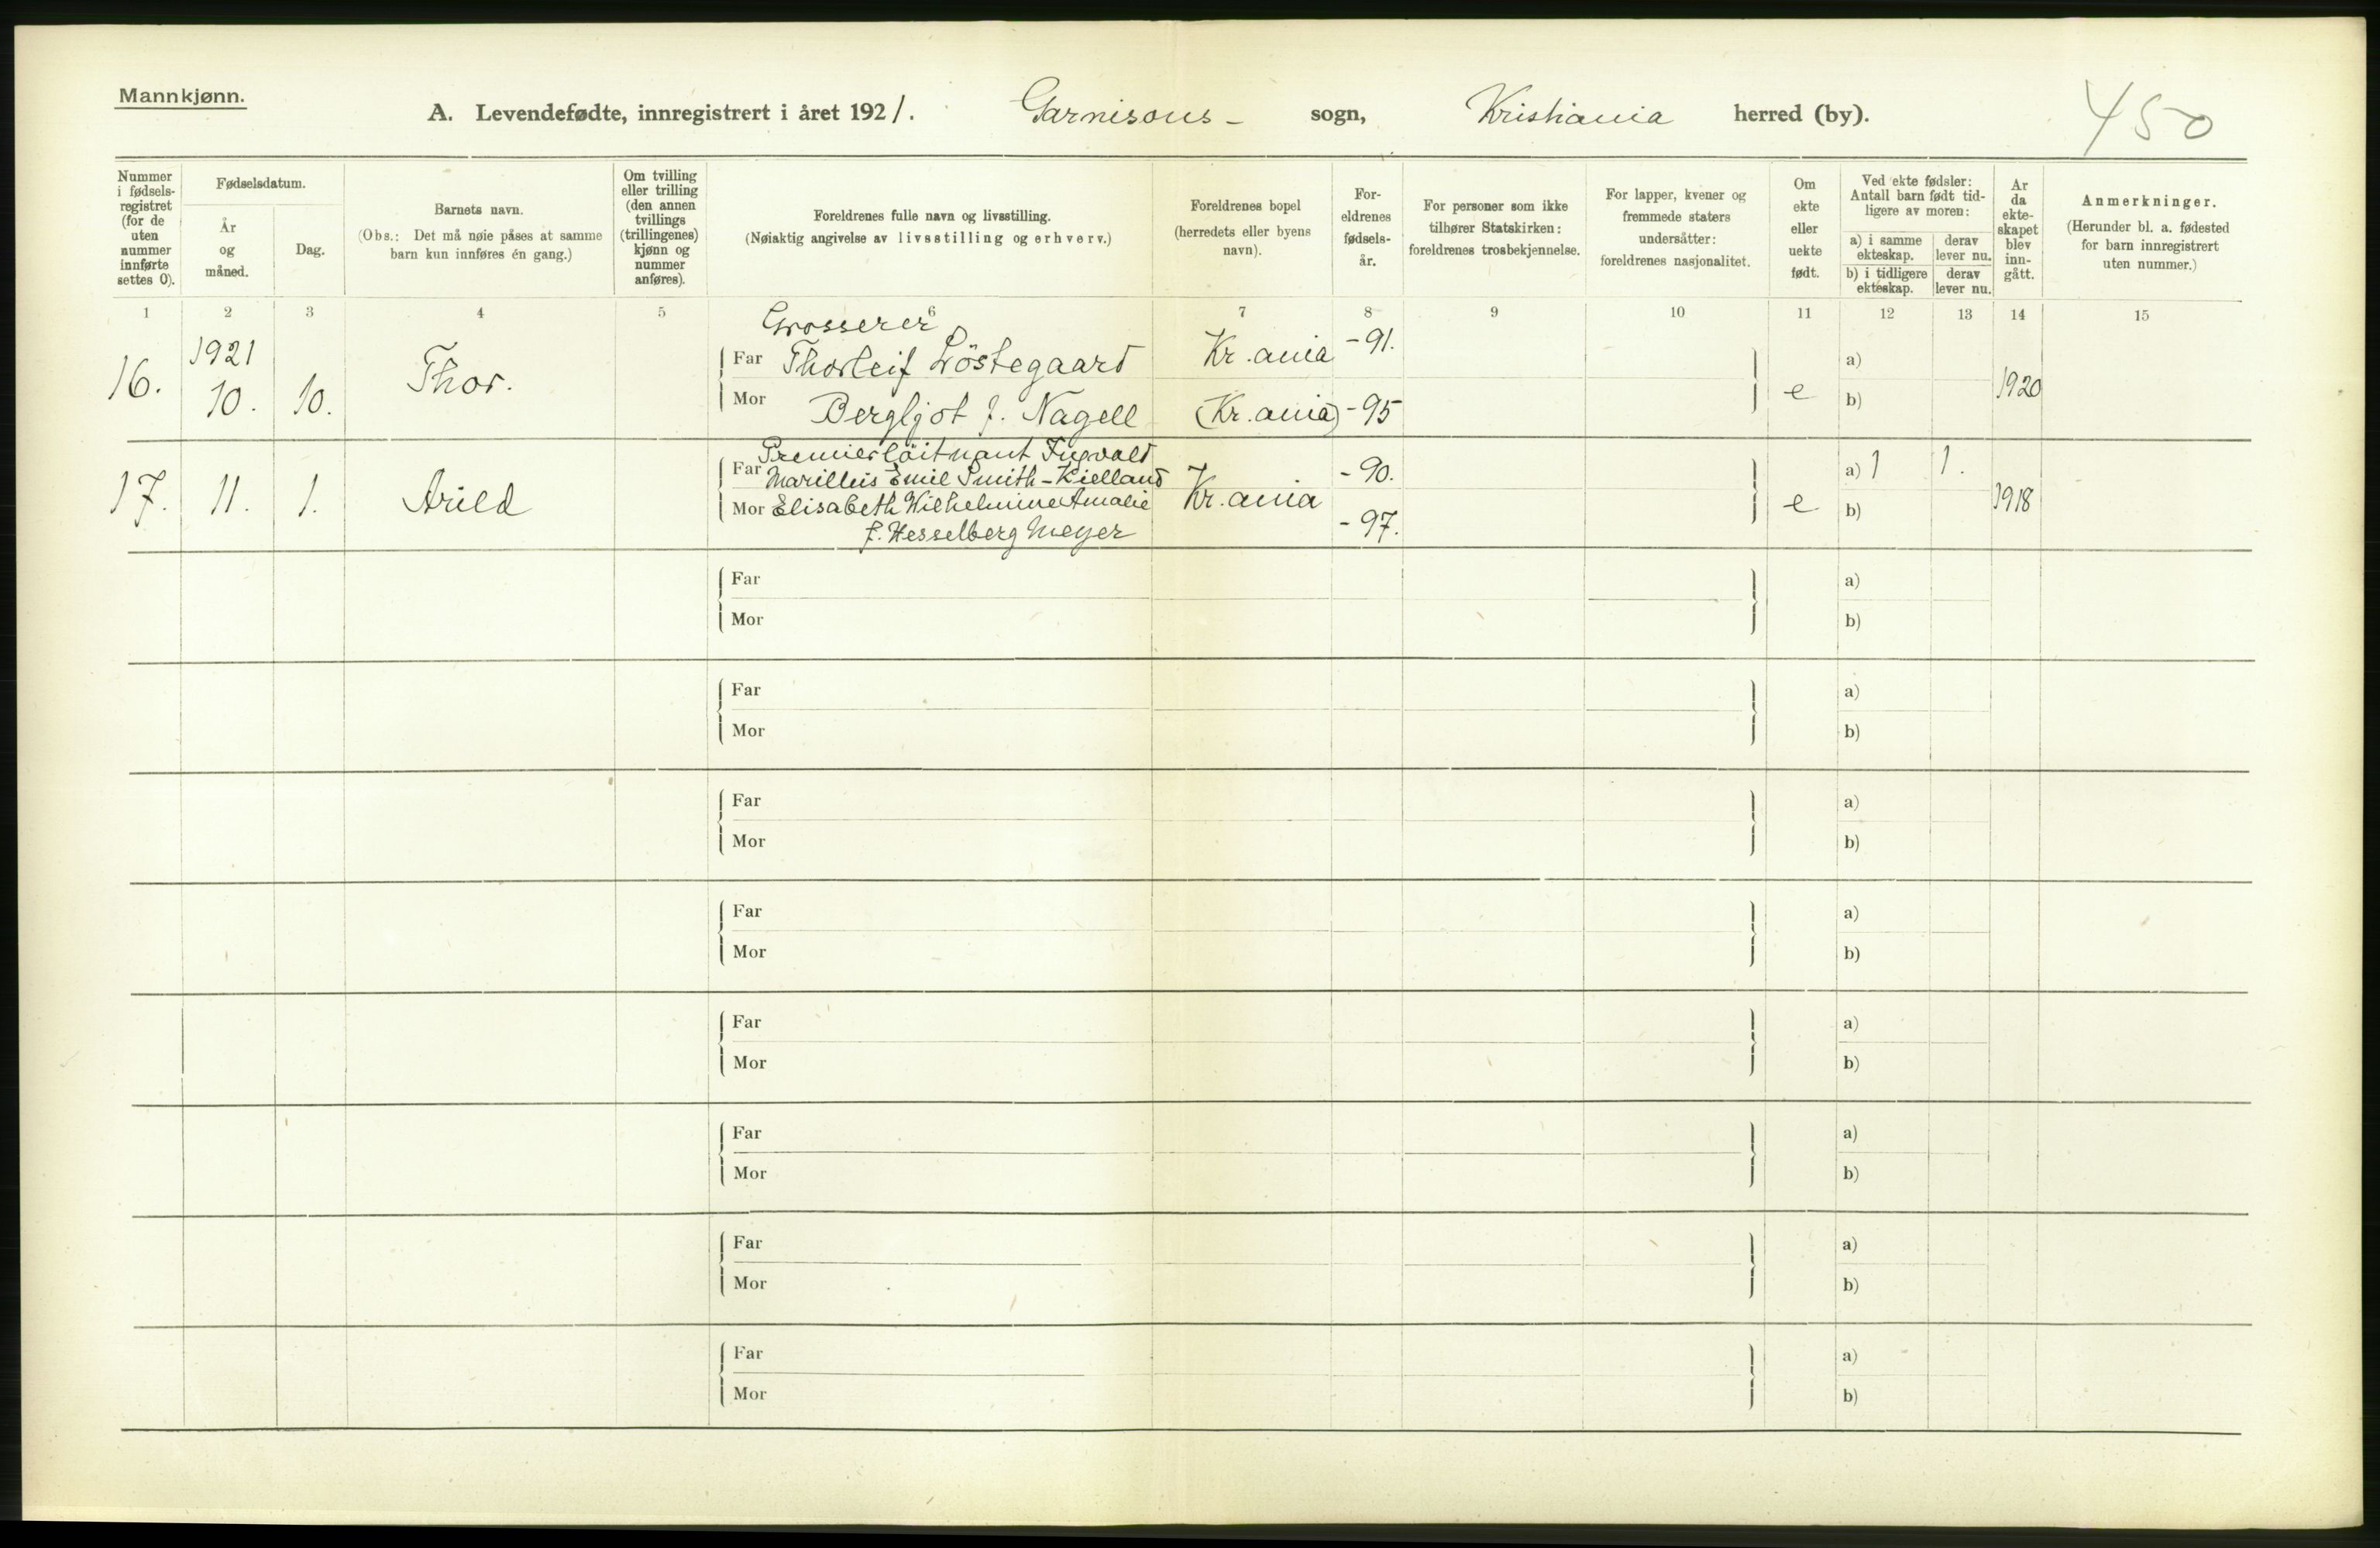 Mannkjønn.
A. Levendefødte, innregistrert i året 1921. Garnisons- sogn, Kristiania herred (by). 450
Nummer i fødsels-registret (for de uten nummer innførte settes 0).
Fødselsdatum.
År og måned.
Dag.
Barnets navn.
(Obs.: Det må nøie påses at samme barn kun innføres én gang.)
Om tvilling eller trilling (den annen tvillings (trillingenes) kjønn og nummer anføres).
Foreldrenes fulle navn og livsstilling.
(Nøiaktig angivelse av livsstilling og erhverv.)
Foreldrenes bopel (herredets eller byens navn).
For-eldrenes fødsels-år.
For personer som ikke tilhører Statskirken: foreldrenes trosbekjennelse.
For lapper, kvener og fremmede staters undersåtter: foreldrenes nasjonalitet.
Om ekte eller uekte født.
Ved ekte fødsler: Antall barn født tid-ligere av moren:
a) i samme ekteskap.
derav lever nu.
b) i tidligere ekteskap.
derav lever nu.
År da ekte-skapet blev inn-gått.
Anmerkninger.
(Herunder bl. a. fødested for barn innregistrert uten nummer.)
1 2 3 4 5 6 7 8 9 10 11 12 13 14 15
Grosserer
16. 1921 10. 10. Thor. Far Thorleif Löstegaard Kr.ania -91. e a) 1920
Mor Bergljot f. Nagell (Kr.ania) -95 b)
Premierløitnant Ingvald
17. 11. 1. Arild Far Marillius Emil Smith-Kielland Kr.ania -90. e a) 1 1. 1918
Mor Elisabeth Wilhelmine Amalie b)
f. Hesselberg Meyer -97.
Far a)
Mor b)
Far a)
Mor b)
Far a)
Mor b)
Far a)
Mor b)
Far a)
Mor b)
Far a)
Mor b)
Far a)
Mor b)
Far a)
Mor b)